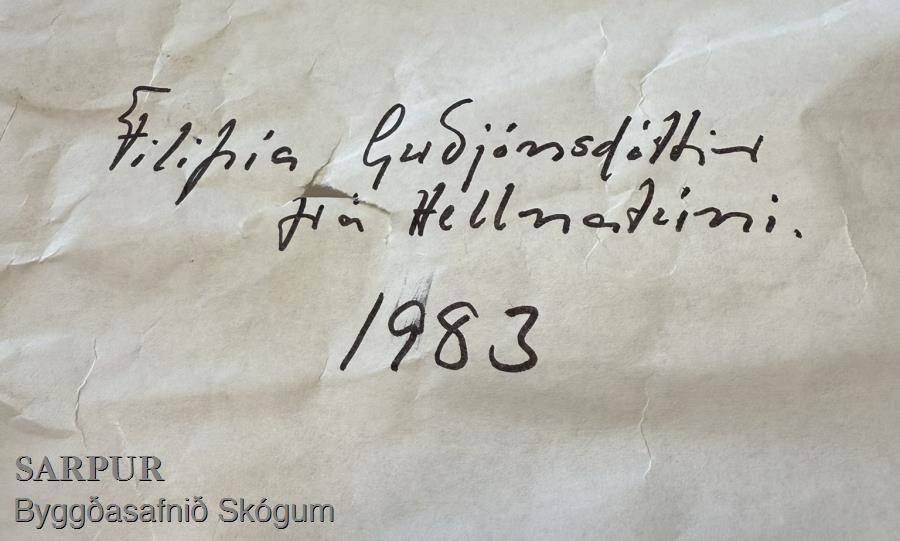 Filipía Guðjónsdóttir
frá Hellnatúni.
1983
SARPUR
Byggðasafnið Skógum